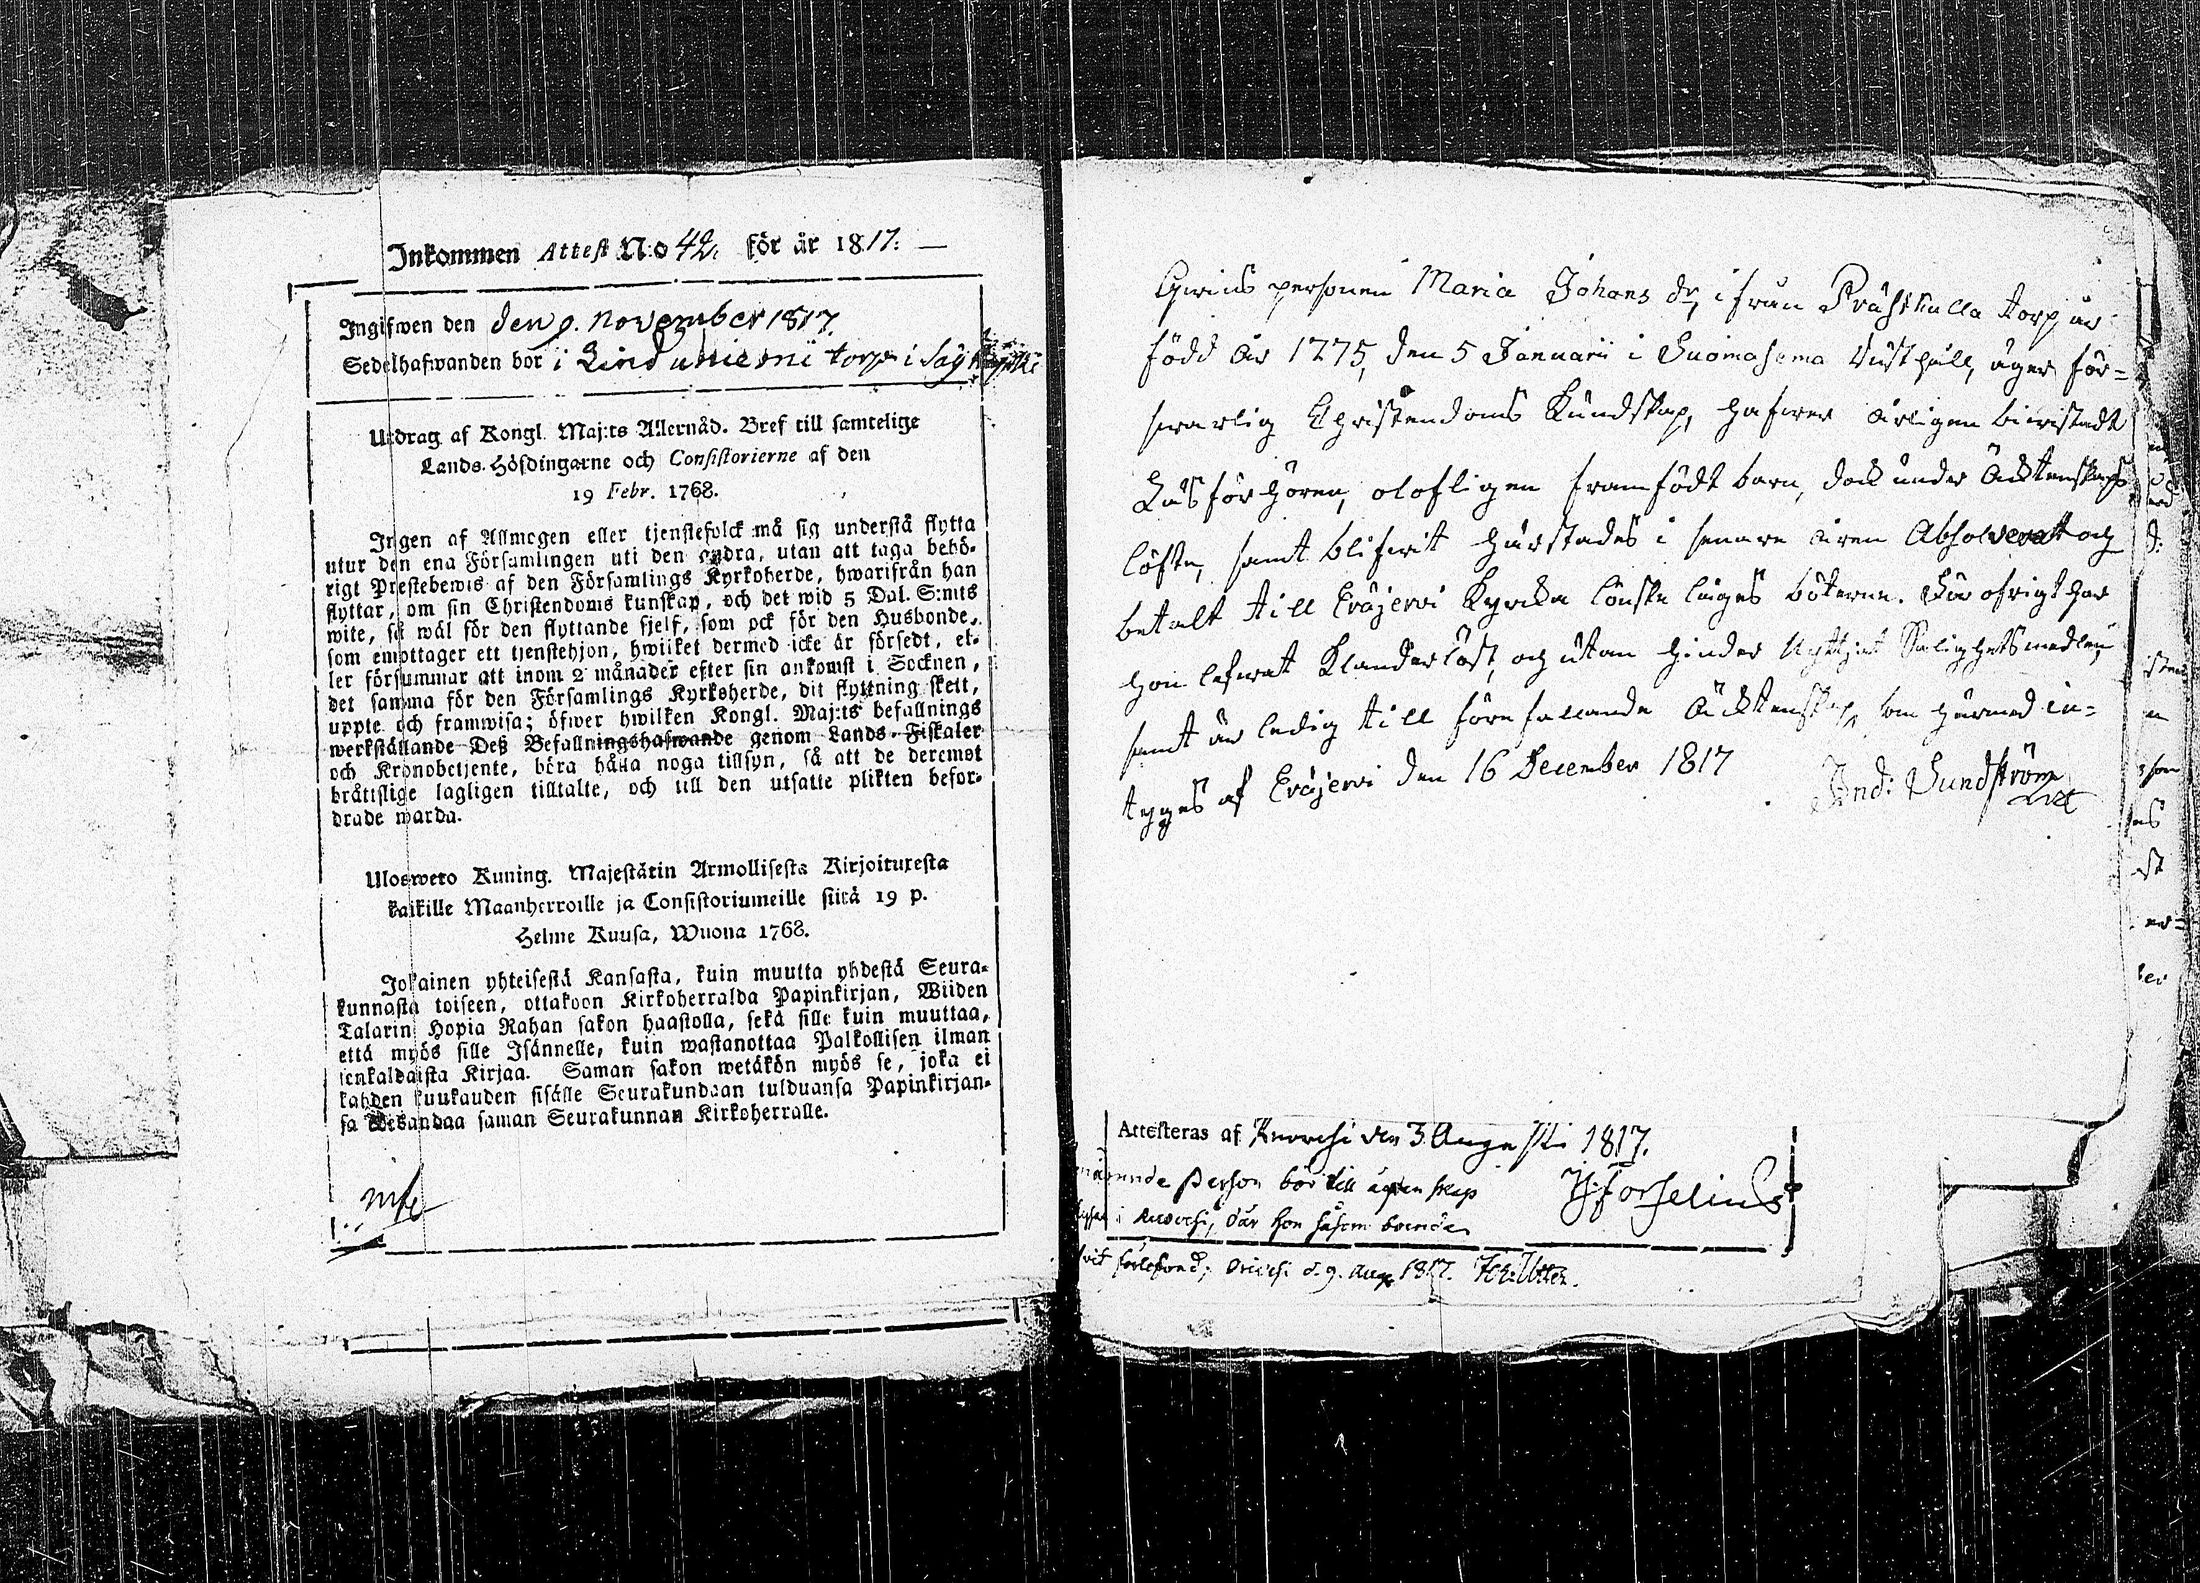 Inkommen Attest N:o 42. för år 1817. —
Ingifwen den den 9. November 1817.
Sedelhafwanden bor i Linduniemi torp i Säynäjoki
Utdrag af Kongl. Maj:ts Allernåd. Bref till samtelige
Lands-Höfdingarne och Consistorierne af den
19 Febr. 1768.
Ingen af Allmogen eller tjenstefolck må sig understå flytta
utur den ena Församlingen uti den andra, utan att taga behö-
rigt Prestebewis af den Församlings Kyrkoherde, hwarifrån han
flyttar, om sin Christendoms kunskap, och det wid 5 Dal. S:mts
wite, så wäl för den flyttande sjelf, som ock för den Husbonde,
som emottager ett tjenstehjon, hwilket dermed icke är försedt, el-
ler försummar att inom 2 månader efter sin ankomst i Socknen,
det samma för den Församlings Kyrkoherde, dit flyttning skett,
uppte och framwisa; öfwer hwilken Kongl. Maj:ts befallnings
werkställande Deß Befallningshafwande genom Lands-Fiskaler
och Kronobetjente, böra hålla noga tillsyn, så att de deremot
bråttslige lagligen tilltalte, och till den utsatte plikten befor-
drade warda.
Ulosweto Kuning. Majestätin Armollisesta Kirjoituxesta
kaikille Maanherroille ja Consistoriumeille siitä 19 p.
Helme Kuusa, Wuona 1768.
Jokainen yhteisestä Kansasta, kuin muutta yhdestä Seura-
kunnasta toiseen, ottakoon Kirkoherralda Papinkirjan, Wiiden
Talarin Hopia Rahan sakon haastolla, sekä sille kuin muuttaa,
että myös sille Isännelle, kuin wastanottaa Palkollisen ilman
senkaldaista Kirjaa. Saman sakon wetäkön myös se, joka ei
kahden kuukauden sisälle Seurakundaan tulduansa Papinkirjan-
sa Edesandaa saman Seurakunnan Kirkoherralle.
Qwins personen Maria Johans dr, ifrån Prästkulla torp är
född år 1775, den 5 Januarii i Suomasema Rusthåll, äger för-
swarlig Christendoms Kundskap, hafwer årligen biwistadt
Husförhören, olofligen framfödt barn, dock under Äcktenskaps
löfte, samt blifwit härstades i senare åren Absolverat och
betalt till Eräjerwi Kyrcka lönske läges böterne. För ofrigt har
hon lefwat Klanderlöst, och utan hinder Nyttjat Salighetsmedlen,
samt är ledig till förefallande Äcktenskap, som härmed in-
tygas af Eräjerwi den 16 December 1817
And: Sundström
Attesteras af Ruovesi den 3 Augusti 1817.
person bör till ägtenskap
i Ruovesi, där hon såsom boende
H: Forselius
Orivesi d. 9. Aug. 1817.